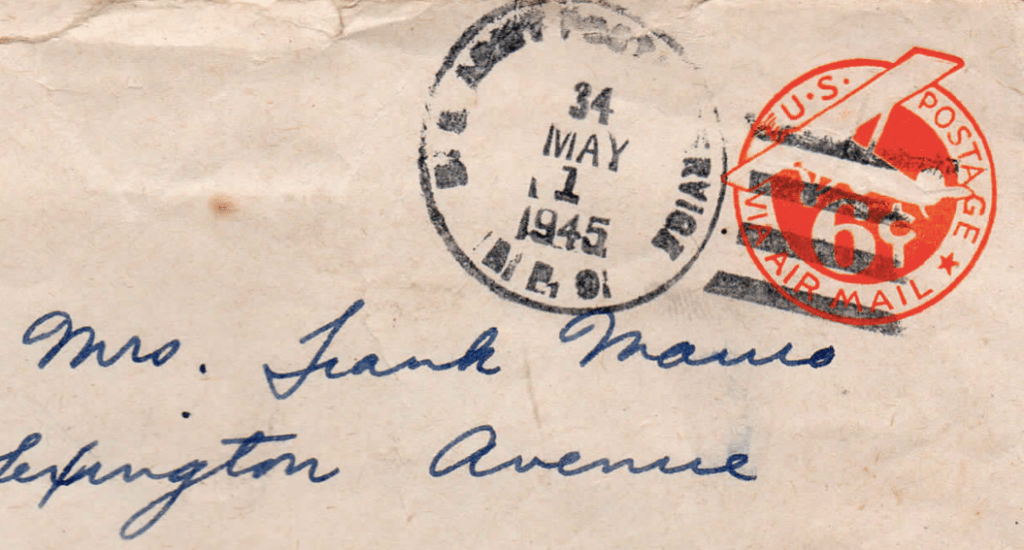 U.S. ARMY POSTAL SERVICE
34
MAY
1
1945
A.P.O.
U.S. POSTAGE
VIA AIR MAIL
6¢
Mrs. Frank
Lexington Avenue